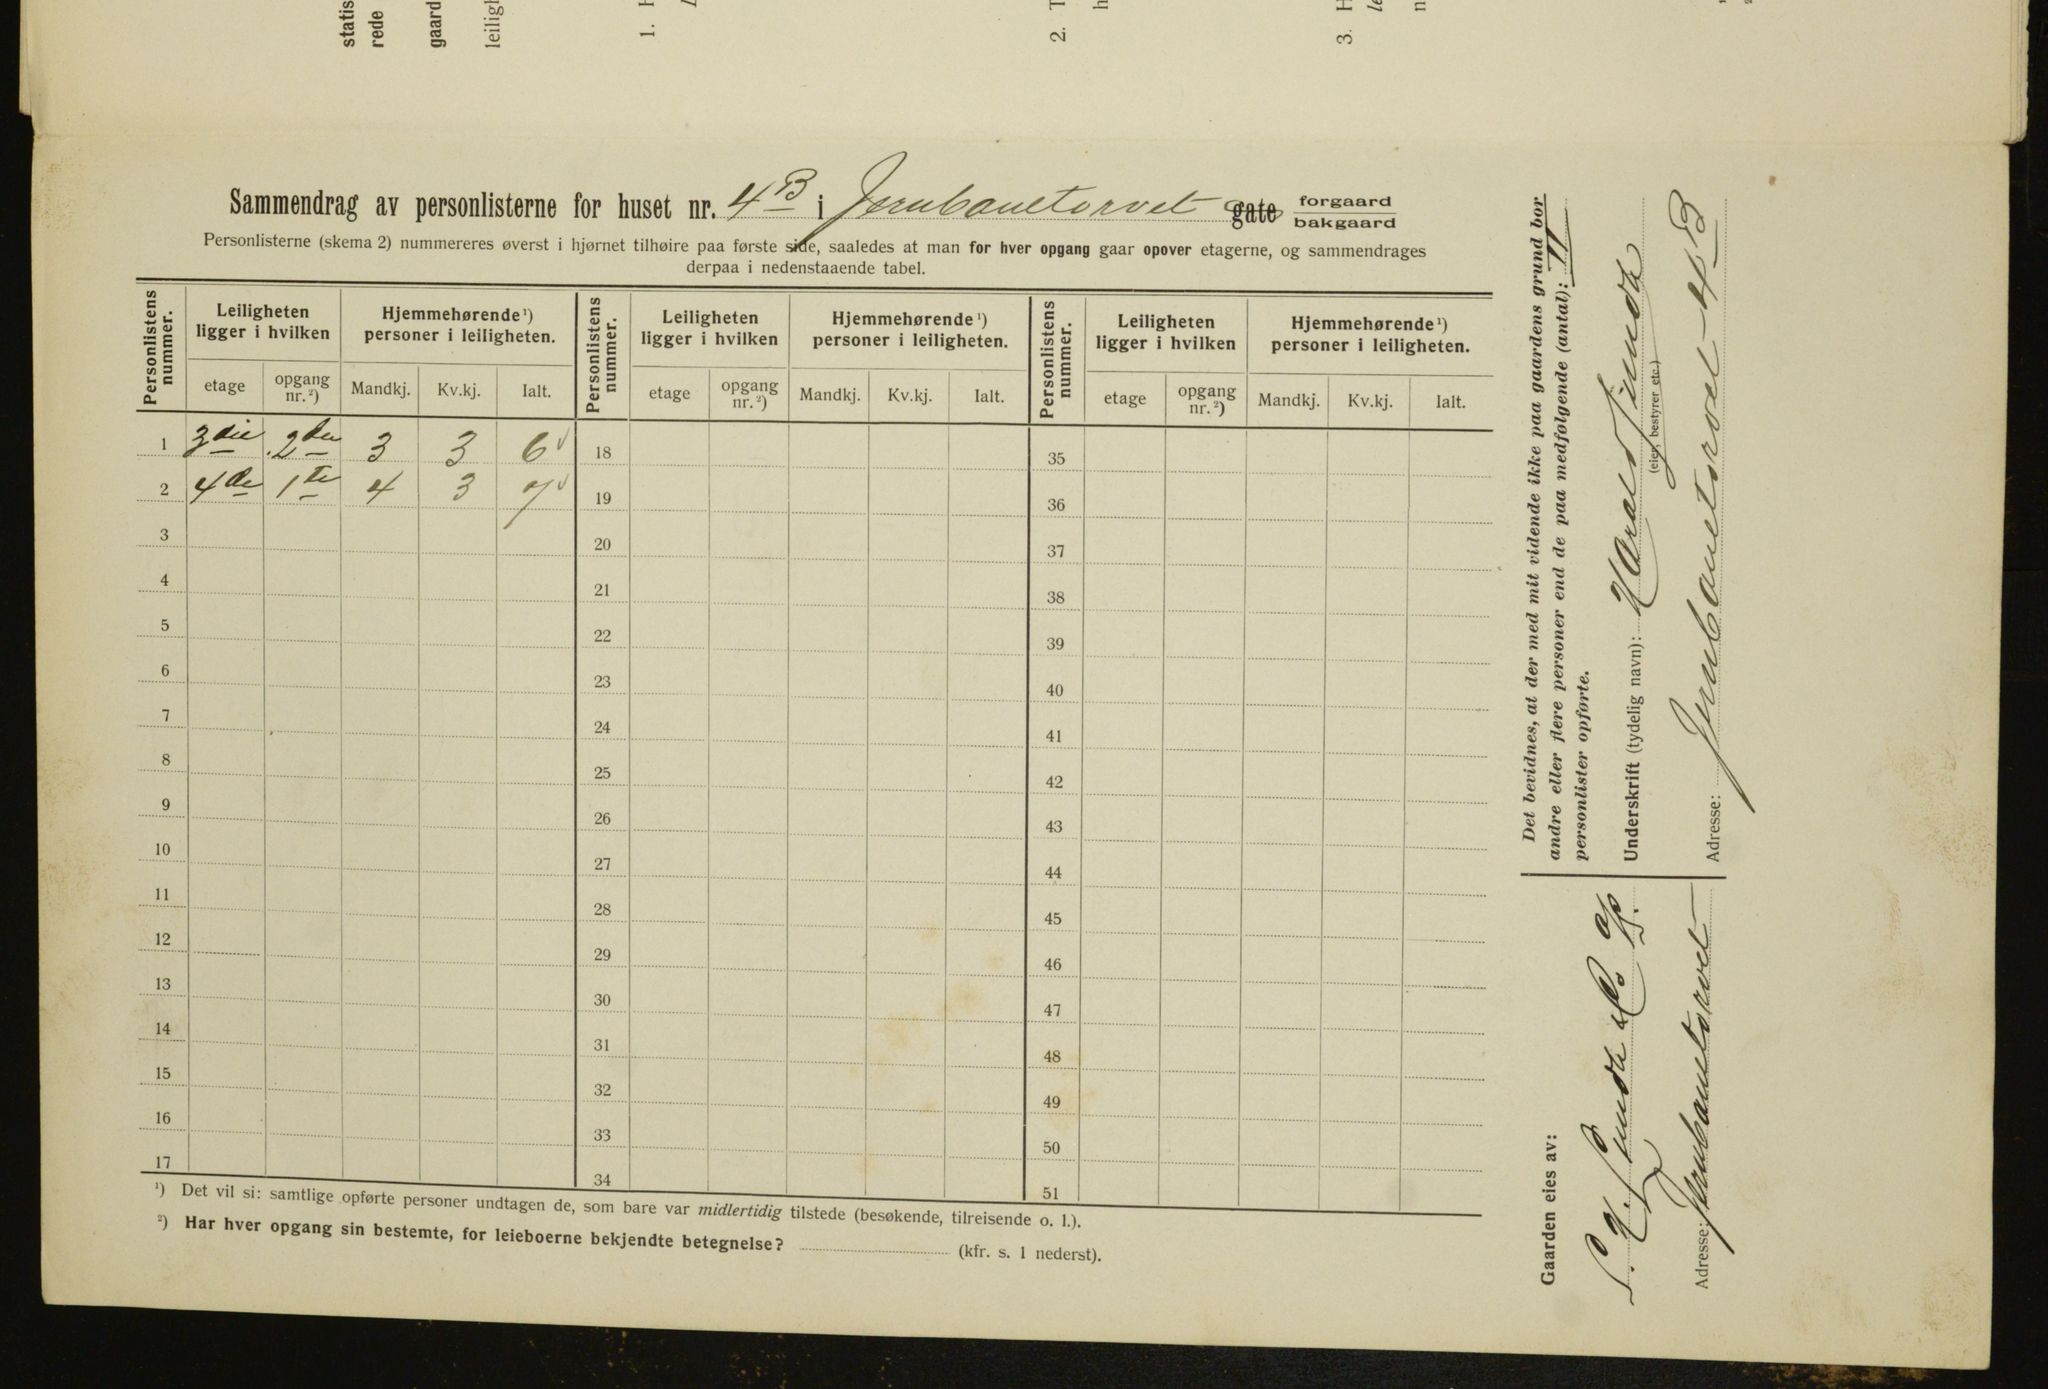 statis
rede
gaard
leiligh
1. H
2. T
h
3. H
le
n
Sammendrag av personlisterne for huset nr. 4 B i Jernbanetorvet gate forgaard bakgaard
Personlisterne (skema 2) nummereres øverst i hjørnet tilhøire paa første side, saaledes at man for hver opgang gaar opover etagerne, og sammendrages
derpaa i nedenstaaende tabel.
Personlistens nummer. Leiligheten ligger i hvilken Hjemmehørende ¹) personer i leiligheten. Personlistens nummer. Leiligheten ligger i hvilken Hjemmehørende ¹) personer i leiligheten. Personlistens nummer. Leiligheten ligger i hvilken Hjemmehørende ¹) personer i leiligheten.
etage opgang nr. ²) Mandkj. Kv.kj. Ialt. etage opgang nr. ²) Mandkj. Kv.kj. Ialt. etage opgang nr. ²) Mandkj. Kv.kj. Ialt.
1 3die 2den 3 3 6 18 35
2 4de 1te 4 3 7 19 36
3 20 37
4 21 38
5 22 39
6 23 40
7 24 41
8 25 42
9 26 43
10 27 44
11 28 45
12 29 46
13 30 47
14 31 48
15 32 49
16 33 50
17 34 51
¹) Det vil si: samtlige opførte personer undtagen de, som bare var midlertidig tilstede (besøkende, tilreisende o. l.).
²) Har hver opgang sin bestemte, for leieboerne bekjendte betegnelse? (kfr. s. 1 nederst).
Det bevidnes, at der med mit vidende ikke paa gaardens grund bor
andre eller flere personer end de paa medfølgende (antal): II
personlister opførte.
Underskrift (tydelig navn): Harald Sunde
(eier, bestyrer etc.)
Adresse: Jernbanetorvet 4 B
Gaarden eies av:
S. H. Sunde & Co
Adresse: Jernbanetorvet